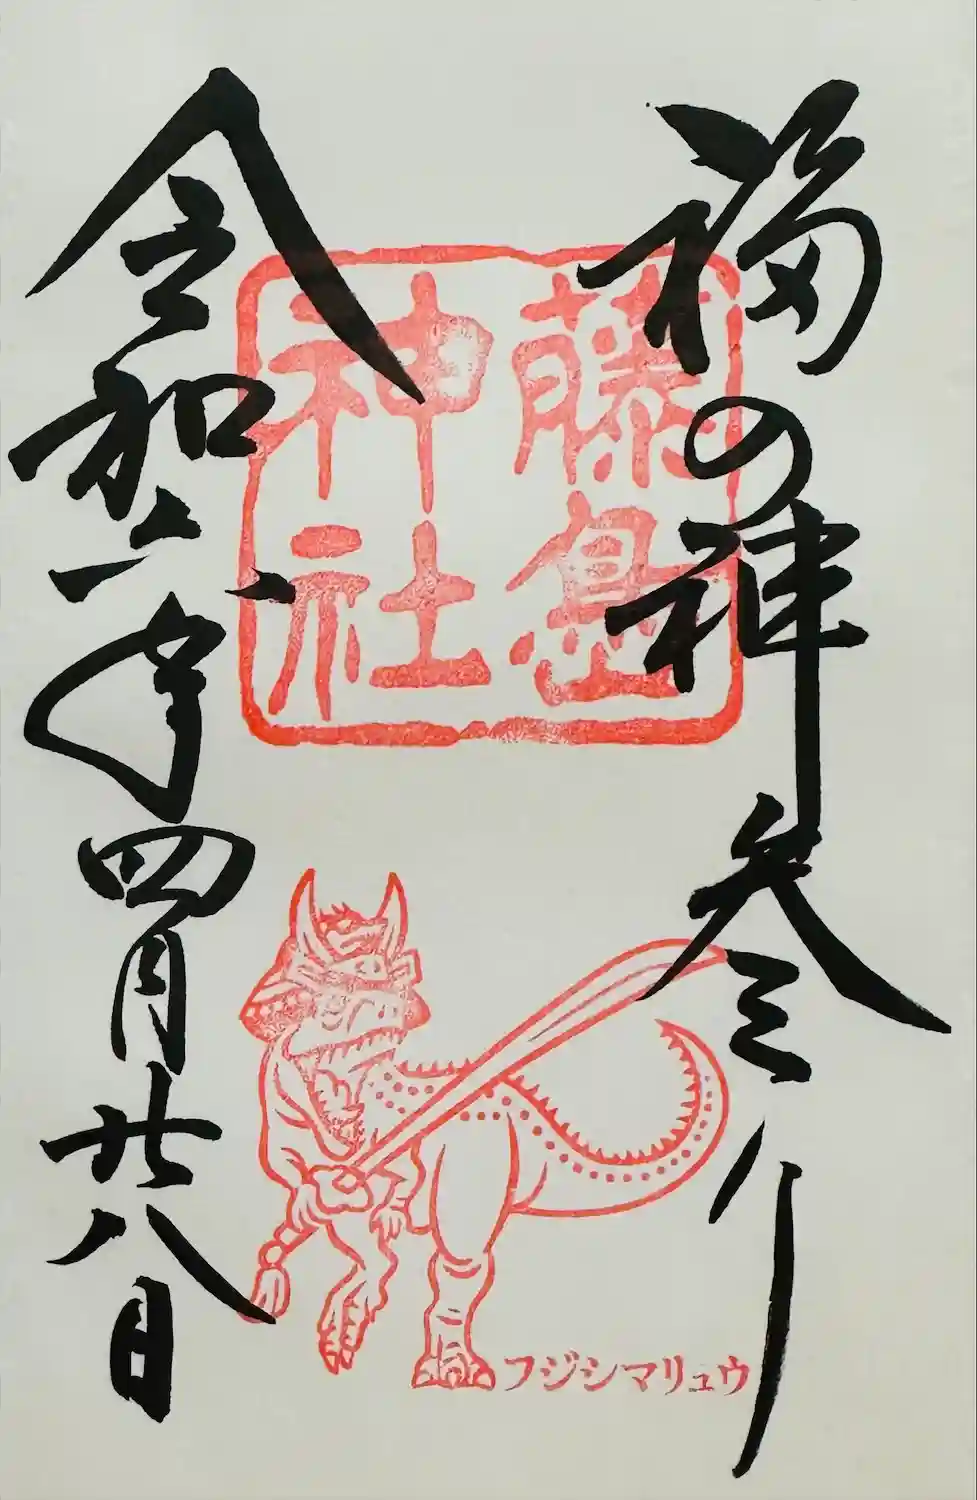 福の神参り
藤島
神社
令和六年四月廿八日
フジシマリュウ